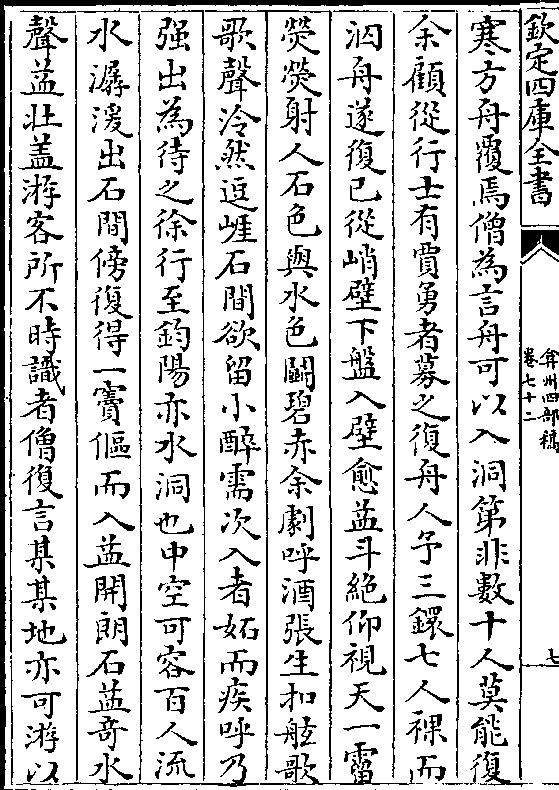 欽定四庫全書
弇州四部稿
卷七十二
七
寒方舟覆焉僧為言舟可以入洞第非數十人莫能復
余顧從行士有賈勇者募之復舟人予三鐶七人裸而
泅舟遂復已從峭壁下盤入壁愈益斗絶仰視天一霤
熒熒射人石色與水色鬭碧赤余劇呼酒張生扣舷歌
歌聲泠然逗崕石間欲留小醉需次入者妬而疾呼乃
强出為待之徐行至鈞陽亦水洞也中空可容百人流
水潺湲出石間傍復得一竇傴而入益開朗石益竒水
聲益壯蓋游客所不時識者僧復言某某地亦可游以